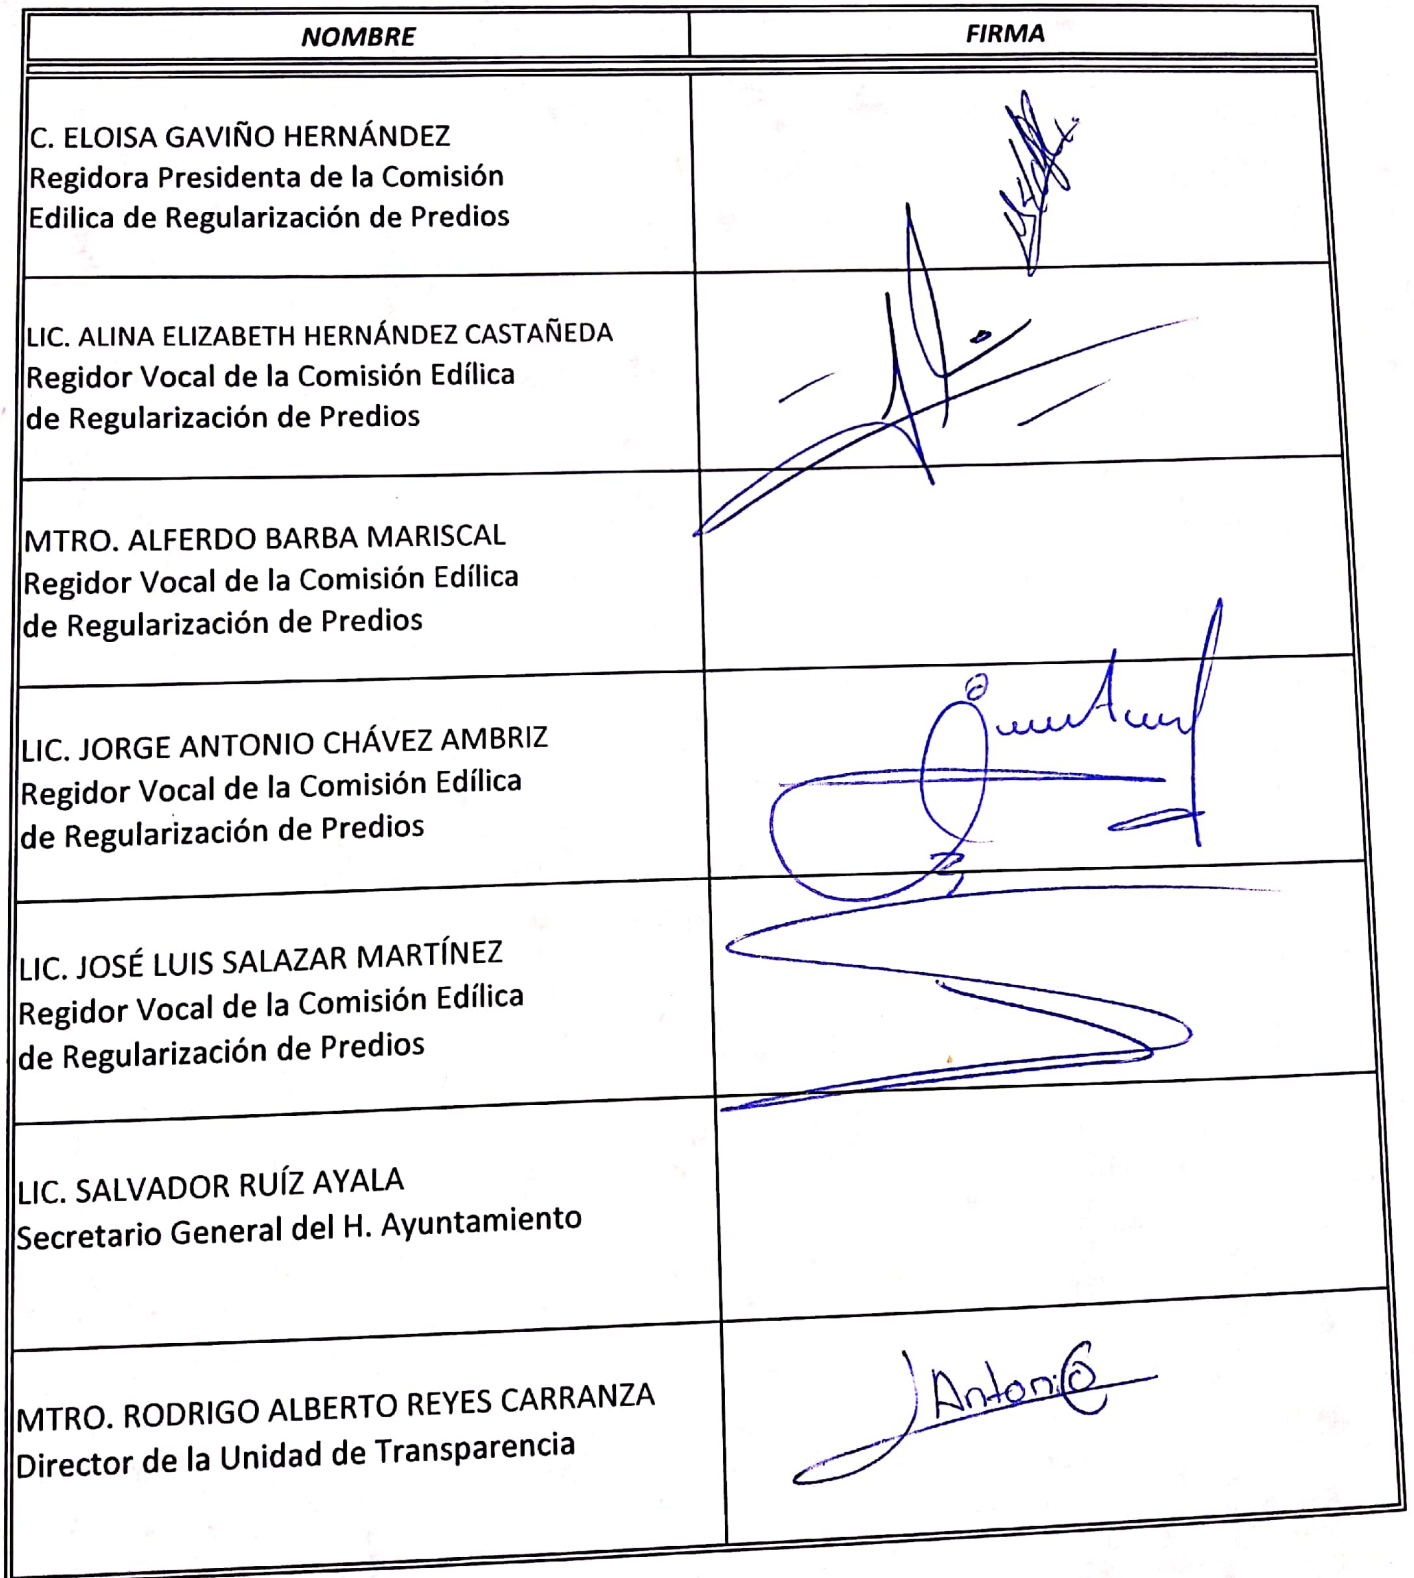 NOMBRE FIRMA
C. ELOISA GAVIÑO HERNÁNDEZ
Regidora Presidenta de la Comisión
Edilica de Regularización de Predios
LIC. ALINA ELIZABETH HERNÁNDEZ CASTAÑEDA
Regidor Vocal de la Comisión Edílica
de Regularización de Predios
MTRO. ALFERDO BARBA MARISCAL
Regidor Vocal de la Comisión Edílica
de Regularización de Predios
LIC. JORGE ANTONIO CHÁVEZ AMBRIZ
Regidor Vocal de la Comisión Edílica
de Regularización de Predios
LIC. JOSÉ LUIS SALAZAR MARTÍNEZ
Regidor Vocal de la Comisión Edílica
de Regularización de Predios
LIC. SALVADOR RUÍZ AYALA
Secretario General del H. Ayuntamiento
MTRO. RODRIGO ALBERTO REYES CARRANZA
Director de la Unidad de Transparencia
J Antonio